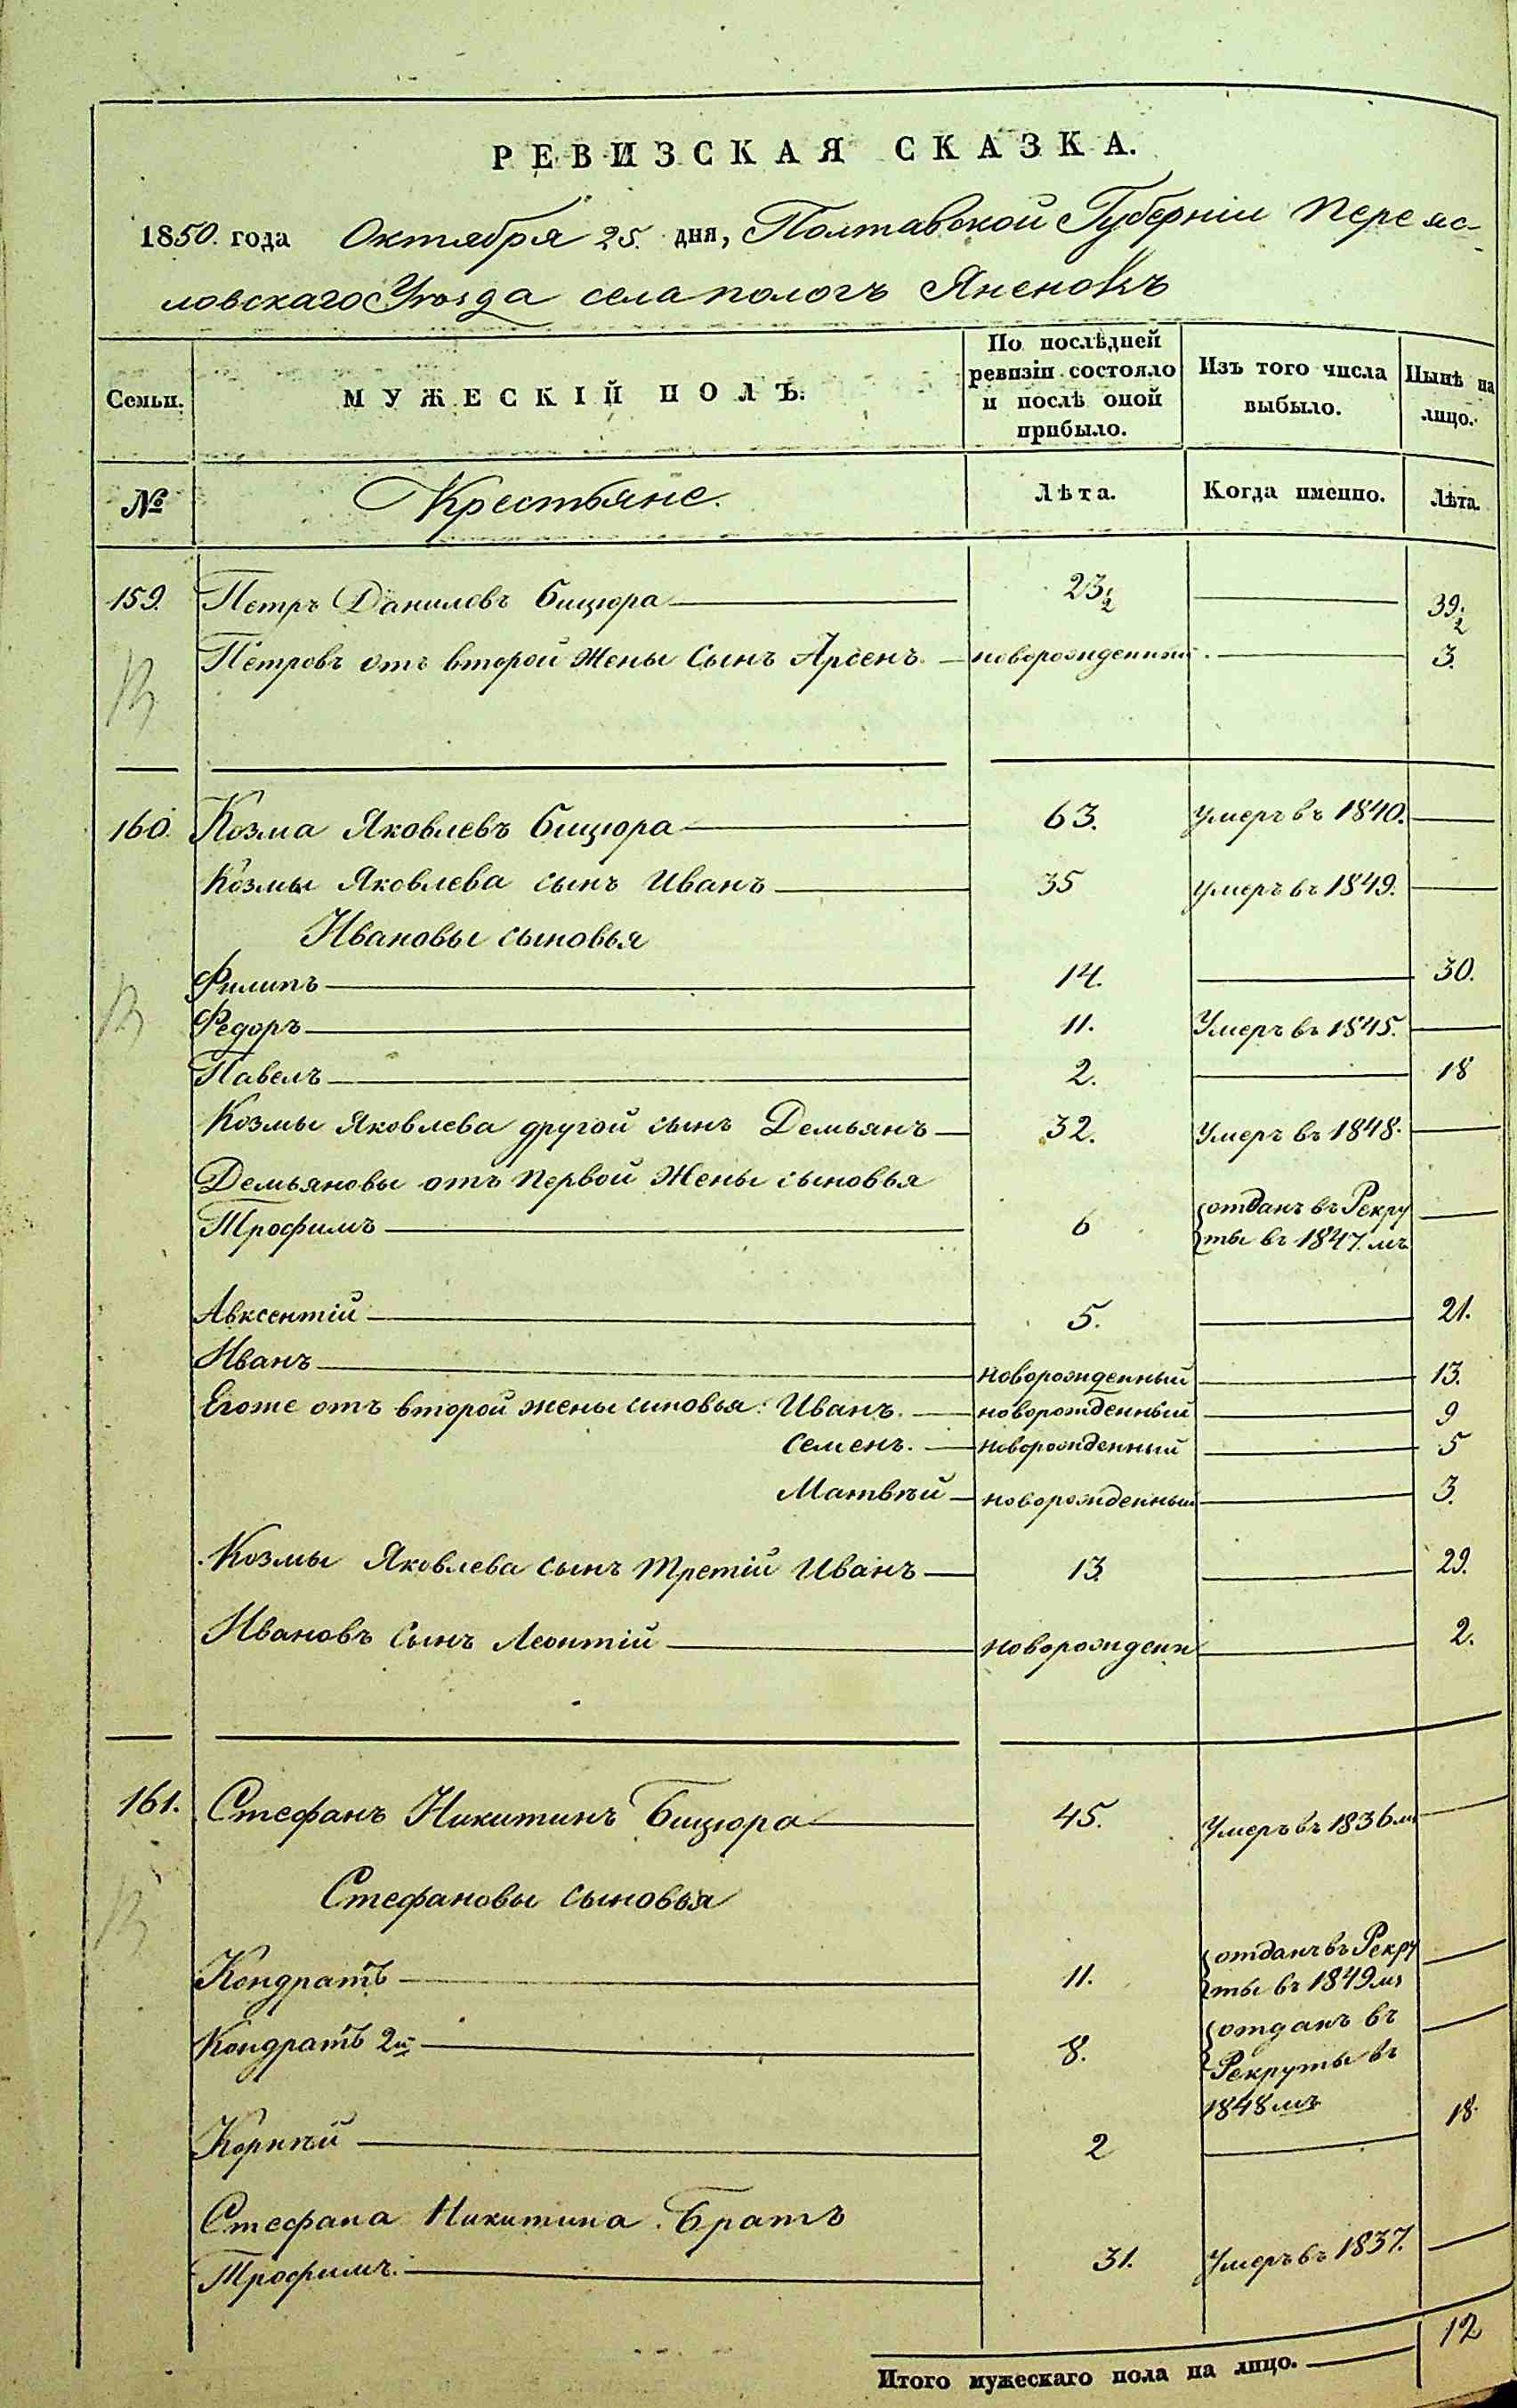 РЕВИЗСКАЯ СКАЗКА.
1850. года Октября 25. дня, Полтавской Губерніи Переяс-
ловскаго Уѣзда села пологъ Яненокъ
Семьи. МУЖЕСКІЙ ПОЛЪ. По послѣдней ревизіи состояло и послѣ оной прибыло. Изъ того числа выбыло. Нынѣ на лицо.
№ Крестьяне. Лѣта. Когда именно. Лѣта.
159. Петръ Данилевъ Бицюра 23 1/2 39. 1/2
Петровъ отъ второй жены Сынъ Арсенъ. новорожденный. 3.
160. Козма Яковлевъ Бицюра 63. умеръ въ 1840.
Козмы Яковлева сынъ Иванъ 35 умеръ въ 1849.
Ивановы сыновья
Филипъ 14. 30.
Федоръ 11. Умеръ въ 1845.
Павелъ 2. 18
Козмы Яковлева другой сынъ Демьянъ 32. Умеръ въ 1848.
Демьяновы отъ первой жены сыновья
Трофимъ 6 отданъ въ Рекру
ты въ 1847.мъ
Авксентій 5. 21.
Иванъ новорожденный 13.
Егоже отъ второй жены синовья: Иванъ. новорожденный 9
Семенъ. новорожденный 5
Матвѣй новорожденный 3.
Козмы Яковлева сынъ третій Иванъ 13. 29.
Ивановъ Сынъ Леонтій новорожден 2.
161. Стефанъ Никитинъ Бицюра 45. Умеръ въ 1836м
Стефановы сыновья
Кондратъ 11. отданъ въ Рекру
ты въ 1849мъ
Кондратъ 2й 8. отданъ въ
Рекруты въ
1848мъ
Корнѣй 2 18.
Стефана Никитина Братъ
Трофимъ. 31. Умеръ въ 1837.
Итого мужескаго пола на лицо. 12